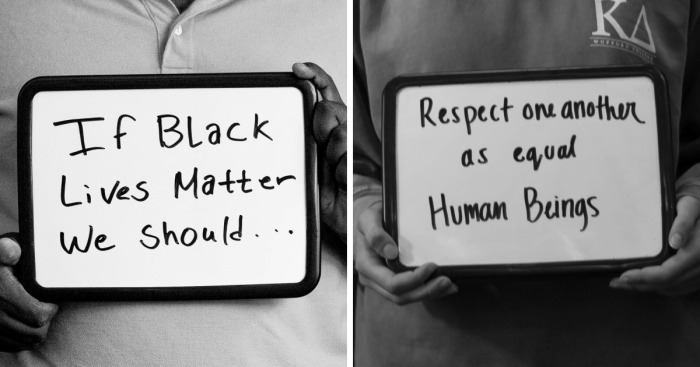 If Black
Lives Matter
We Should...
KΔ
WOFFORD COLLEGE
Respect one another
as equal
Human Beings